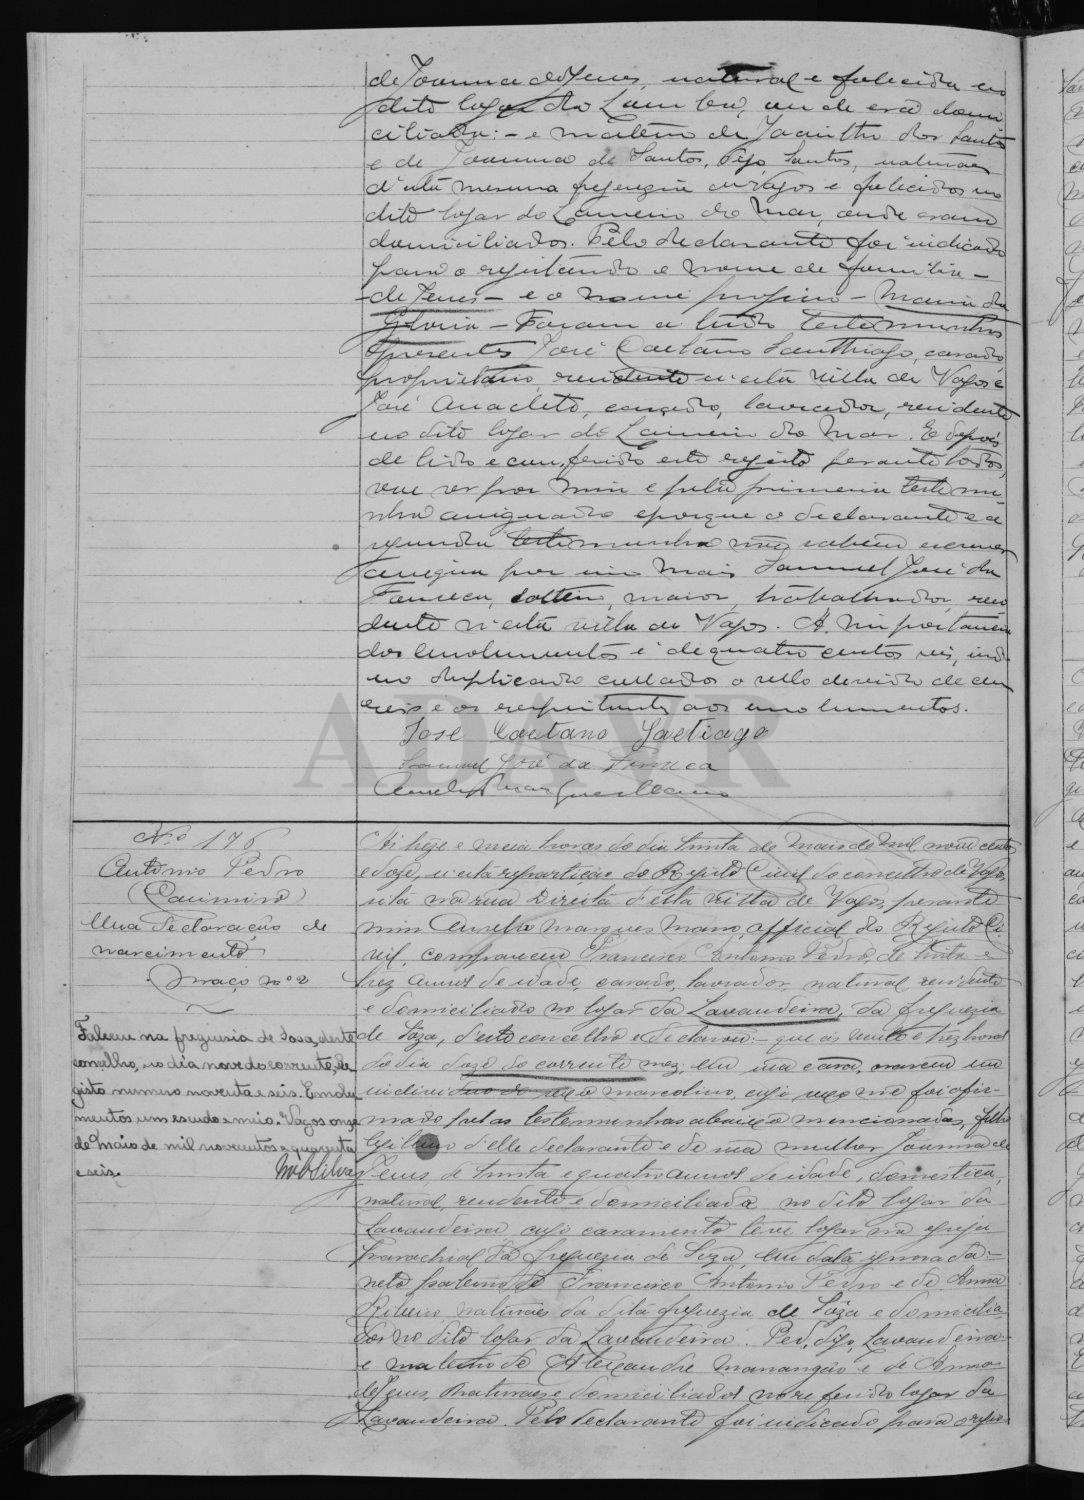 de Joanna de Jesus, natural e fallecida no
dito logar da Lomba, onde era domi
ciliada: - e materno de Jacintho dos Santos
e de Joanna de Santos, digo, Santos, naturaes
d'esta mesma freguezia de Vagos e fallecidos no
dito logar do Lameiro do Mar, onde eram
domiciliados. Pelo declarante foi indicado
para o registando o nome de familia -
- de Jesus - e o nome proprio - Maria da
Gloria - Foram a tudo testemunhas
presentes José Caetano Santhiago, casado,
proprietario, residente n'esta villa de Vagos e
José Anacleto, casado, lavrador, residente
no dito logar do Lameiro do Mar. E depois
de lido e conferido este registo perante todos,
vae ser por mim e pela primeira testemu-
nha assignado e porque o declarante e a
segunda testemunha não sabem escrever
assigna por elles Manuel José da
Fonseca, solteiro, maior, trabalhador, resi
dente n'esta villa de Vagos. A importancia
dos emolumentos é de quatro centos reis, indo
no duplicado collados o sello devido de cem
reis e os respeitantes aos emolumentos.
José Caetano Santiago
Manuel José da Fonseca
Aurelio Marques Mano
N.º 176
Antonio Pedro
(Casimiro)
Uma declaração de
nascimento
Maço nº 2
Falleceu na freguesia de Sosa, deste
concelho, no dia nove do corrente, Re
gisto numero noventa e seis. Emolu
mentos um escudo e meio. Vagos onze
de Maio de mil novecentos e quarenta
e seis.
Silva
Ás treze e meia horas do dia trinta de Maio de mil nove centos
e doze, n'esta repartição do Registo Civil do concelho de Vagos,
sita na rua Direita d'esta villa de Vagos, perante
mim Aurelio Marques Mano, official do Registo Ci-
vil, compareceu Francisco Antonio Pedro, de trinta e
trez annos de idade, casado, lavrador, natural, residente
e domiciliado no logar da Lavandeira, da freguezia
de Soza, d'este concelho e declarou: - que ás vinte e trez horas
do dia doze do corrente mez, em sua casa, nasceu um
individuo do sexo masculino, cujo sexo me foi affir-
mado pelas testemunhas abaixo mencionadas, filho
legitimo d'elle declarante e de sua mulher Joanna de
Jesus, de trinta e quatro annos de idade, domestica,
natural, residente e domiciliada no dito logar da
Lavandeira cujo casamento teve logar na egreja
parochial da freguezia de Soza, em data ignorada: -
neto paterno de Francisco Antonio Pedro e de Anna
Ribeiro, naturaes da dita freguezia de Soza e domicilia
dos no dito logar da Lavandeira. Ped, digo, Lavandeira -
e materno de Alexandre Manangão e de Anna
de Jesus, naturaes e domiciliados no referido logar da
Lavandeira. Pelo declarante foi indicado para o regis-
ADAVR